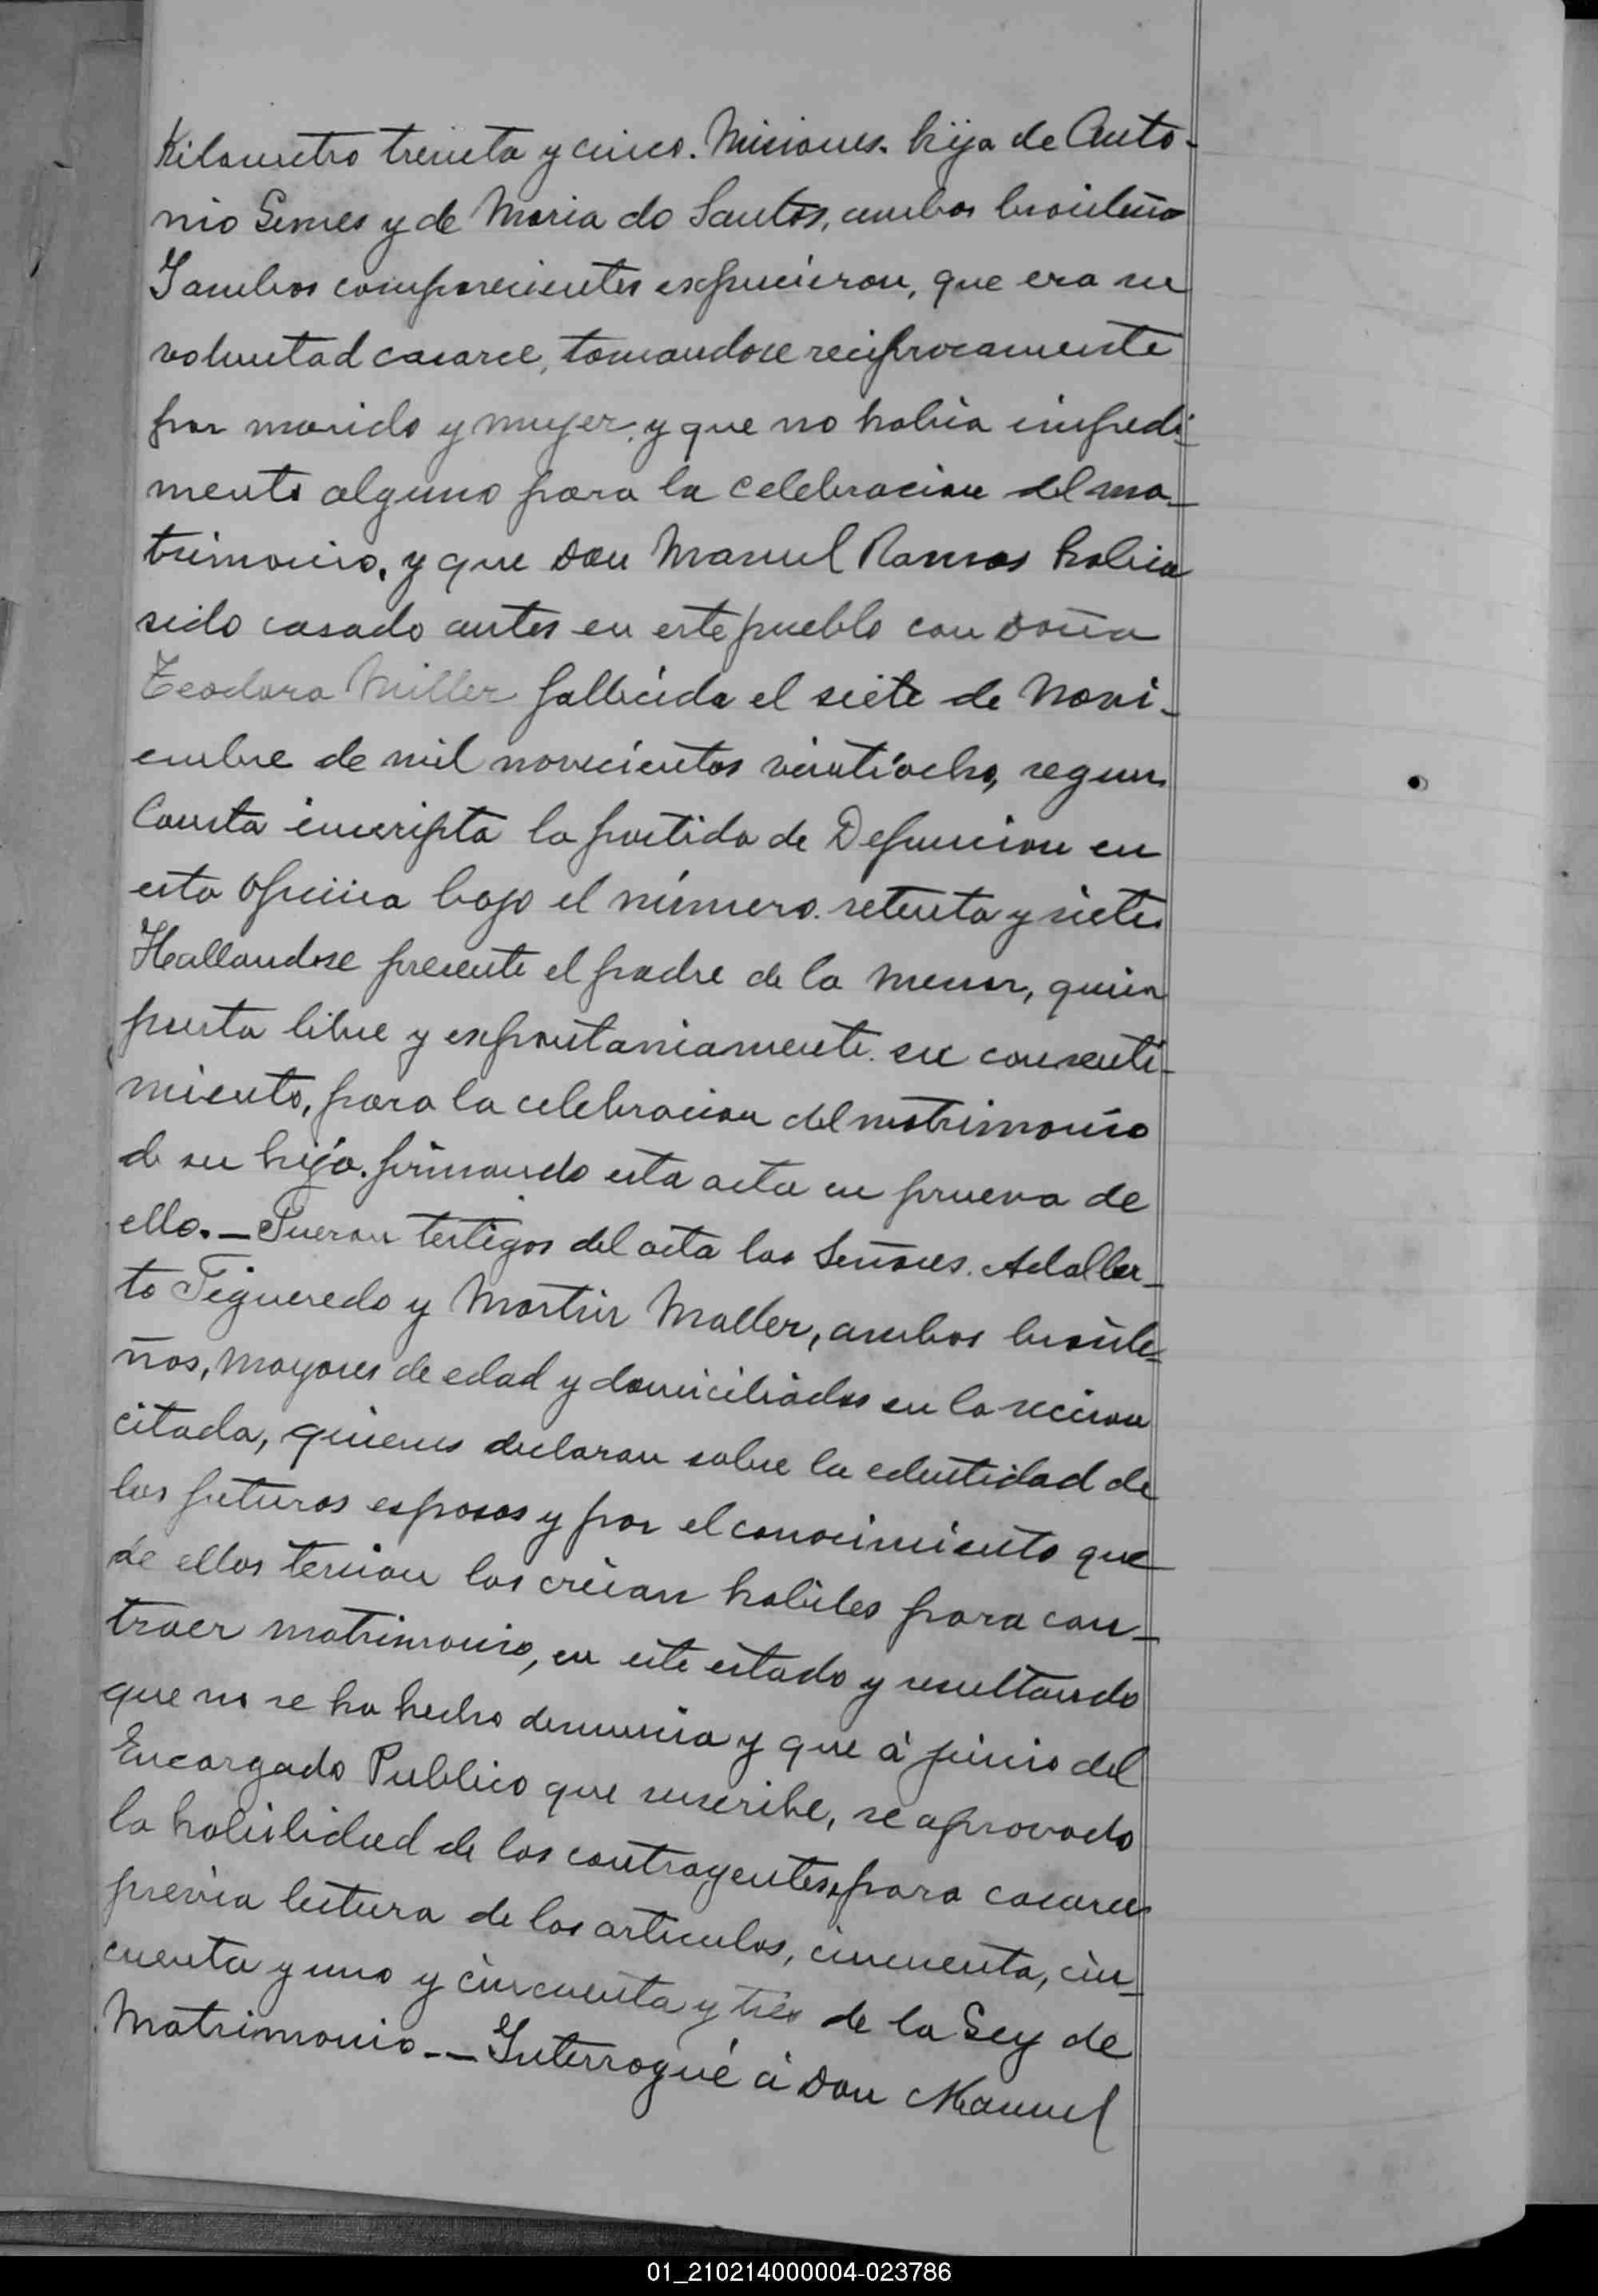 Kilometro treinta y cinco. Misiones. hija de Anto-
nio Gemes y de Maria do Santos, ambos brasileños
Y ambos comparecientes expucieron, que era su
voluntad casarce, tomandose reciprocamente
por marido y mujer, y que no habia impedi-
mento alguno para la celebracion del ma-
trimonio, y que Don Manuel Ramos habia
sido casado antes en este pueblo con Doña
Teodora Miller fallecida el siete de Novi-
embre de mil novecientos veintiocho, segun
Consta inscripta la partida de Defuncion en
esta oficina bajo el número. setenta y siete.
Hallandose presente el padre de la menor, quien
presta libre y expontaniamente. su consenti-
miento, para la celebracion del matrimonio
de su hija. firmando esta acta en prueva de
ello. — Fueron testigos del acta los Señores. Adalber-
to Figueredo y Martin Maller, ambos brasile-
ños, mayores de edad y domiciliados en la seccion
citada, quienes declaran sobre la edentidad de
los futuros esposos y por el conocimiento que
de ellos tenian los creian habiles para con-
traer matrimonio, en este estado y resultando
que no se ha hecho denuncia y que á juicio del
Encargado Publico que suscribe, se aprovado
la habilidad de los contrayentes, para casarce
previa lectura de los articulos, cincuenta, cin-
cuenta y uno y cincuenta y tres de la Ley de
Matrimonio. — Interrogué á Don Manuel
01_210214000004-023786